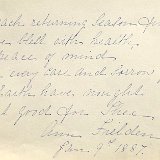 each returning Season
blest with health,
Peace of mind
every care and Sorrow,
Earth have nought
good for Thee
Ann Fielden
Jan. 9th 1887